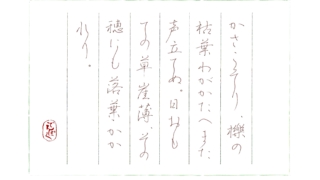 かさこそり、櫟の
枯葉わがかたへまた
声立てぬ。日おも
ての草崖薄その
穂にも落葉かか
れり。